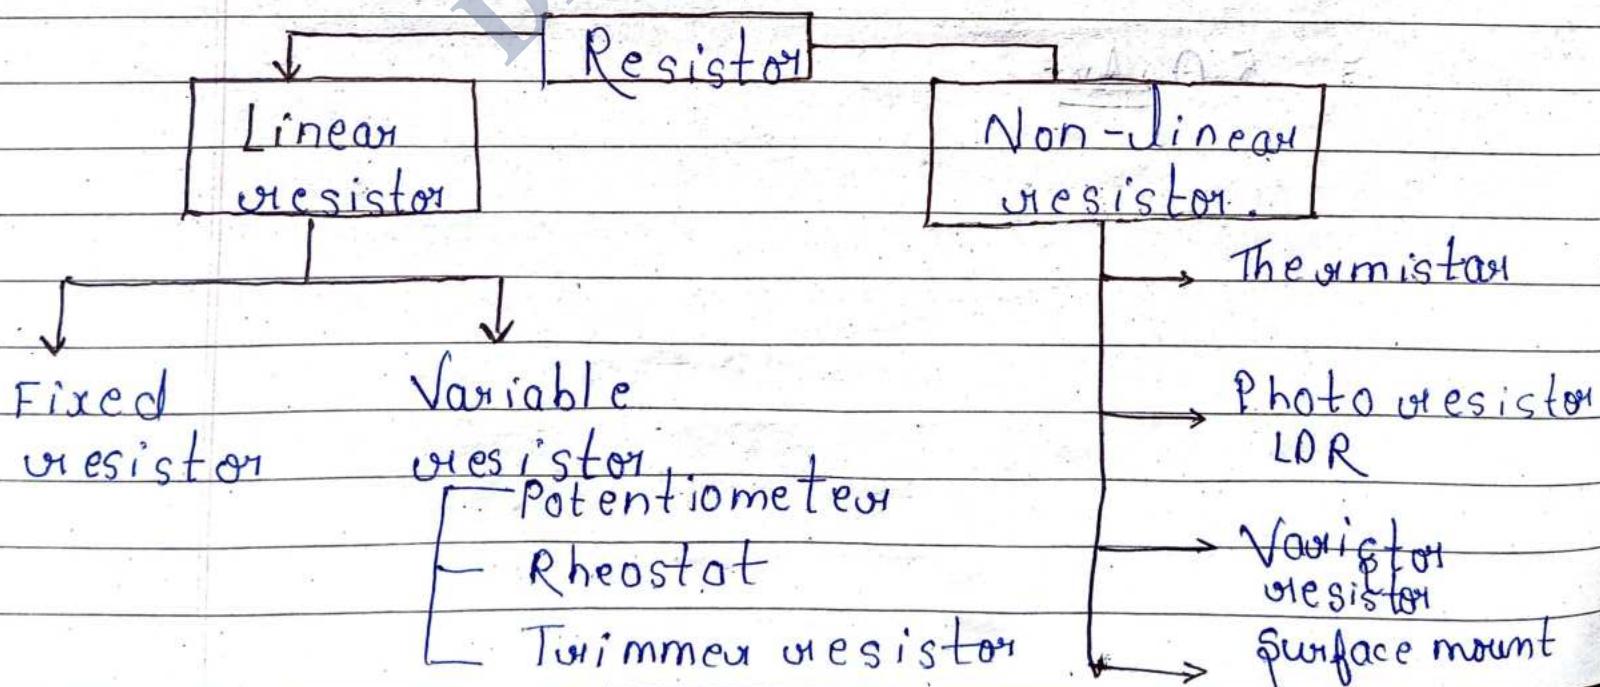 Resistor
Linear
resistor
Non-linear
resistor.
Thermistar
Fixed
resistor
Variable
resistor
Potentiometer
Rheostat
Trimmer resistor
Photo resistor
LDR
Varistor
resistor
Surface mount